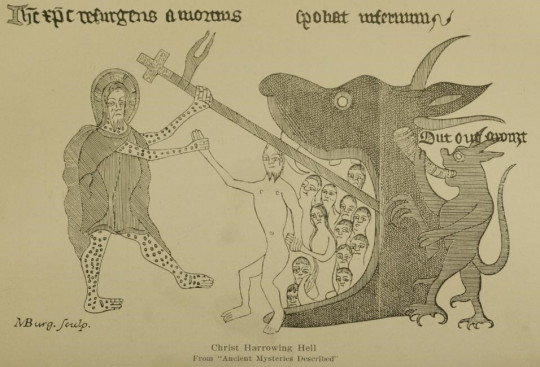 Ih̄c xp̄c resurgens a mortuis spoliat infernum
Out out aronzt
MBurg. sculp.
Christ Harrowing Hell
From "Ancient Mysteries Described"